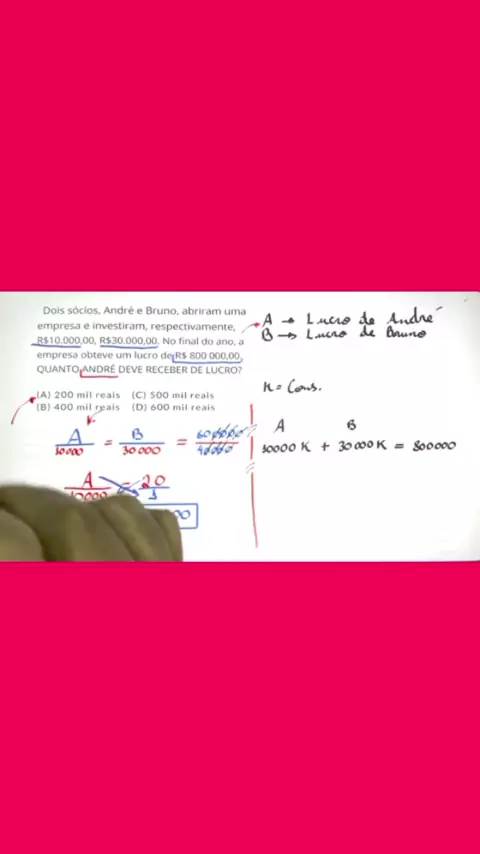 Dois sócios, André e Bruno, abriram uma
empresa e investiram, respectivamente,
R$10.000,00, R$30.000,00. No final do ano, a
empresa obteve um lucro de R$ 800 000,00,
QUANTO ANDRÉ DEVE RECEBER DE LUCRO?
(A) 200 mil reais (C) 500 mil reais
(B) 400 mil reais (D) 600 mil reais
A/10000 = B/30000 =
A/10000 = 20/1
00
A → Lucro de André
B → Lucro de Bruno
K = Cons.
A B
10000 K + 30000 K = 800000